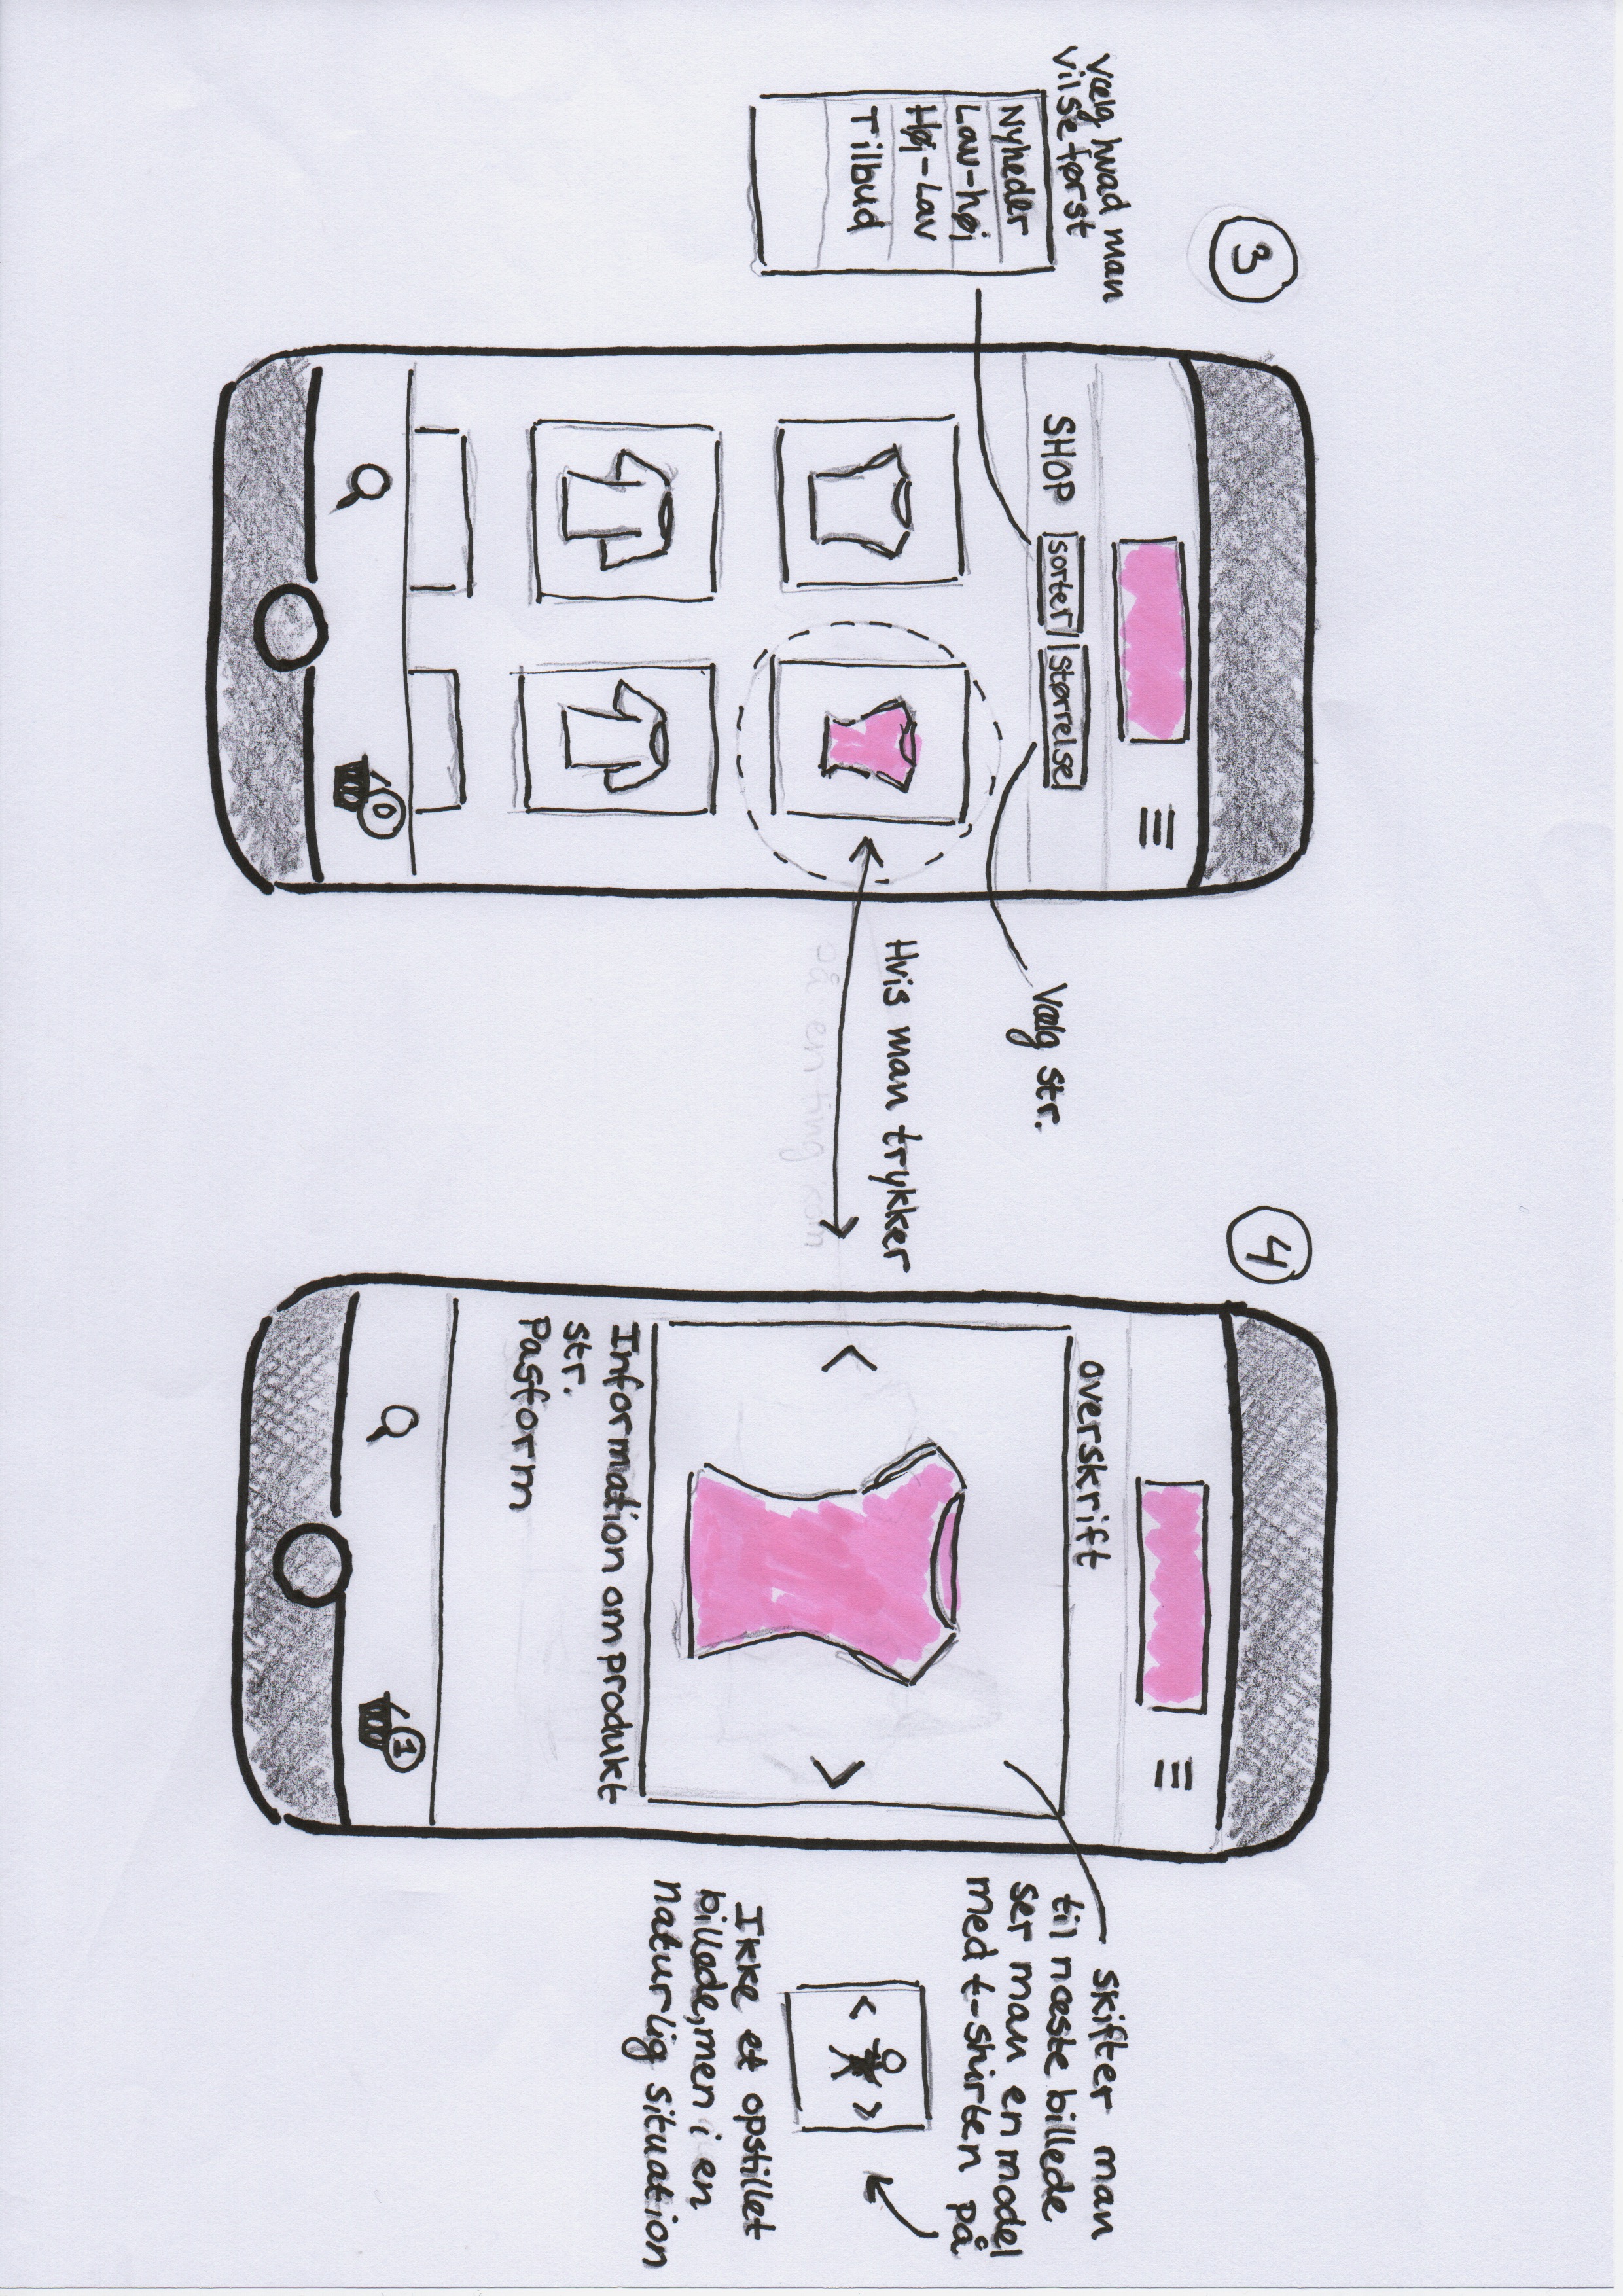 3
Vælg hvad man
vil se først
Nyheder
Lav-høj
Høj-Lav
Tilbud
SHOP sorter størrelse
Vælg str.
Hvis man trykker
på en ting kom
0
4
overskrift
Information om produkt
str.
Pasform
1
skifter man
til næste billede
ser man en model
med t-shirten på
Ikke et opstillet
billede, men i en
naturlig situation